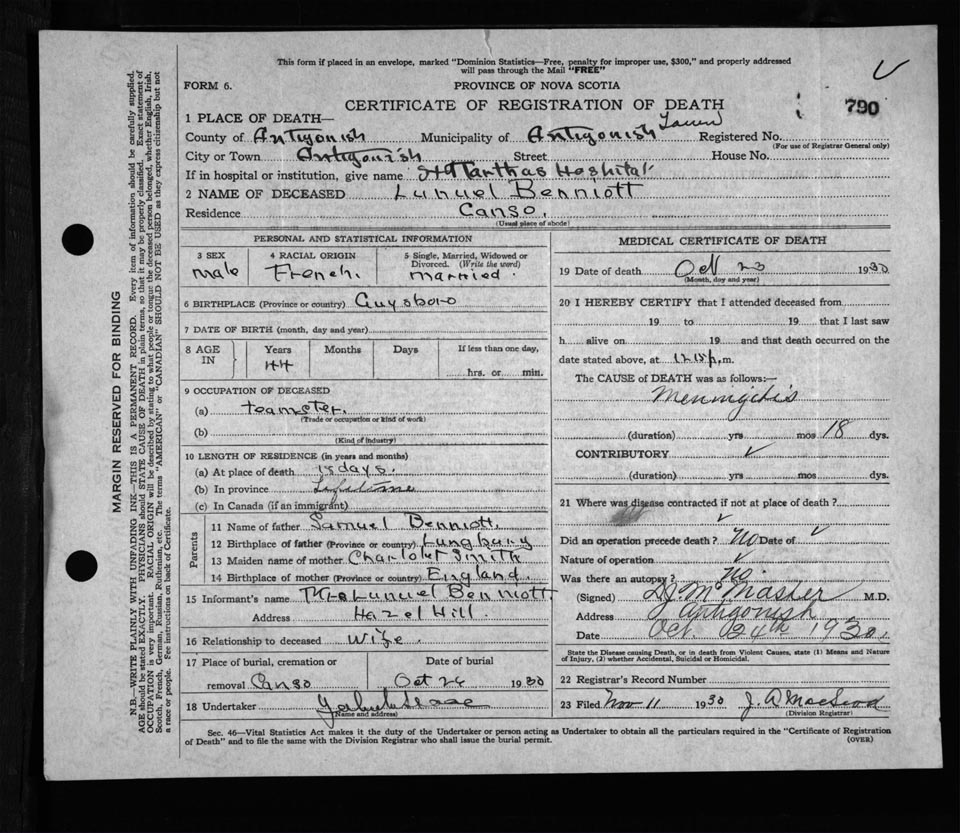 This form if placed in an envelope, marked "Dominion Statistics—Free, penalty for improper use, $300," and properly addressed
will pass through the Mail "FREE"
FORM 6.
PROVINCE OF NOVA SCOTIA
CERTIFICATE OF REGISTRATION OF DEATH
790
1 PLACE OF DEATH—
County of Antigonish Municipality of Antigonish Town Registered No.
(For use of Registrar General only)
City or Town Antigonish Street House No.
If in hospital or institution, give name St Marthas Hospital
2 NAME OF DECEASED Lunuel Benniott
Residence Canso.
(Usual place of abode)
PERSONAL AND STATISTICAL INFORMATION
3 SEX 4 RACIAL ORIGIN 5 Single, Married, Widowed or
Divorced. (Write the word)
male French. married.
6 BIRTHPLACE (Province or country) Guysboro
7 DATE OF BIRTH (month, day and year)
8 AGE IN Years Months Days If less than one day,
44 hrs. or min.
9 OCCUPATION OF DECEASED
(a) teamster.
(Trade or occupation or kind of work)
(b)
(Kind of Industry)
10 LENGTH OF RESIDENCE (in years and months)
(a) At place of death 18 days.
(b) In province Lifetime
(c) In Canada (if an immigrant)
Parents
11 Name of father Samuel Benniott.
12 Birthplace of father (Province or country) Lungburg
13 Maiden name of mother Charlotet Smith
14 Birthplace of mother (Province or country) England.
15 Informant's name Mrs Lunuel Benniott
Address Hazel Hill.
16 Relationship to deceased wife.
17 Place of burial, cremation or Date of burial
removal Canso Oct 26 1930
18 Undertaker
(Name and address)
MEDICAL CERTIFICATE OF DEATH
19 Date of death Oct 23 1930
(Month, day and year)
20 I HEREBY CERTIFY that I attended deceased from
19 to 19 that I last saw
h alive on 19 and that death occurred on the
date stated above, at 12.15 p.m.
The CAUSE of DEATH was as follows:—
Menningitis
(duration) yrs mos 18 dys.
CONTRIBUTORY ✓
(duration) yrs mos dys.
21 Where was disease contracted if not at place of death?
✓
Did an operation precede death? No Date of ✓
Nature of operation ✓
Was there an autopsy? No.
(Signed) McMaster M.D.
Address Antigonish
Date Oct. 24th 1930.
State the Disease causing Death, or in death from Violent Causes, state (1) Means and Nature
of Injury, (2) whether Accidental, Suicidal or Homicidal.
22 Registrar's Record Number
23 Filed Nov 11 1930 J. A. MacLeod
(Division Registrar)
Sec. 46—Vital Statistics Act makes it the duty of the Undertaker or person acting as Undertaker to obtain all the particulars required in the "Certificate of Registration
of Death" and to file the same with the Division Registrar who shall issue the burial permit.
(OVER)
MARGIN RESERVED FOR BINDING
N.B.—WRITE PLAINLY WITH UNFADING INK—THIS IS A PERMANENT RECORD. Every item of information should be carefully supplied.
AGE should be stated EXACTLY. PHYSICIANS should STATE CAUSE OF DEATH in plain terms, so that it may be properly classified. Exact statement of
OCCUPATION is very important. RACIAL ORIGIN will be described by stating to what people or tongue the deceased person belonged, whether English, Irish,
Scotch, French, German, Russian, Ruthenian, etc. The terms "AMERICAN" or "CANADIAN" SHOULD NOT BE USED as they express citizenship but not
a race or people. See instructions on back of Certificate.